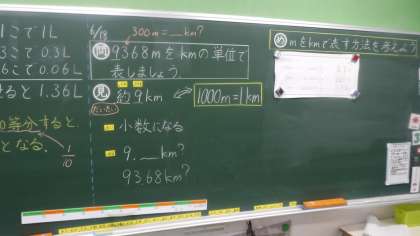 1こで1L
3こで0.3L
6こで0.06L
ると1.36L
0等分すると、
となる。
1/10
6/18
300m=__km?
問 9368mをkmの単位で
表しましょう。
見 約9km
1000m=1km
だいたい
小数になる
9.__km?
93.68km?
め mをkmで表す方法を考えよう